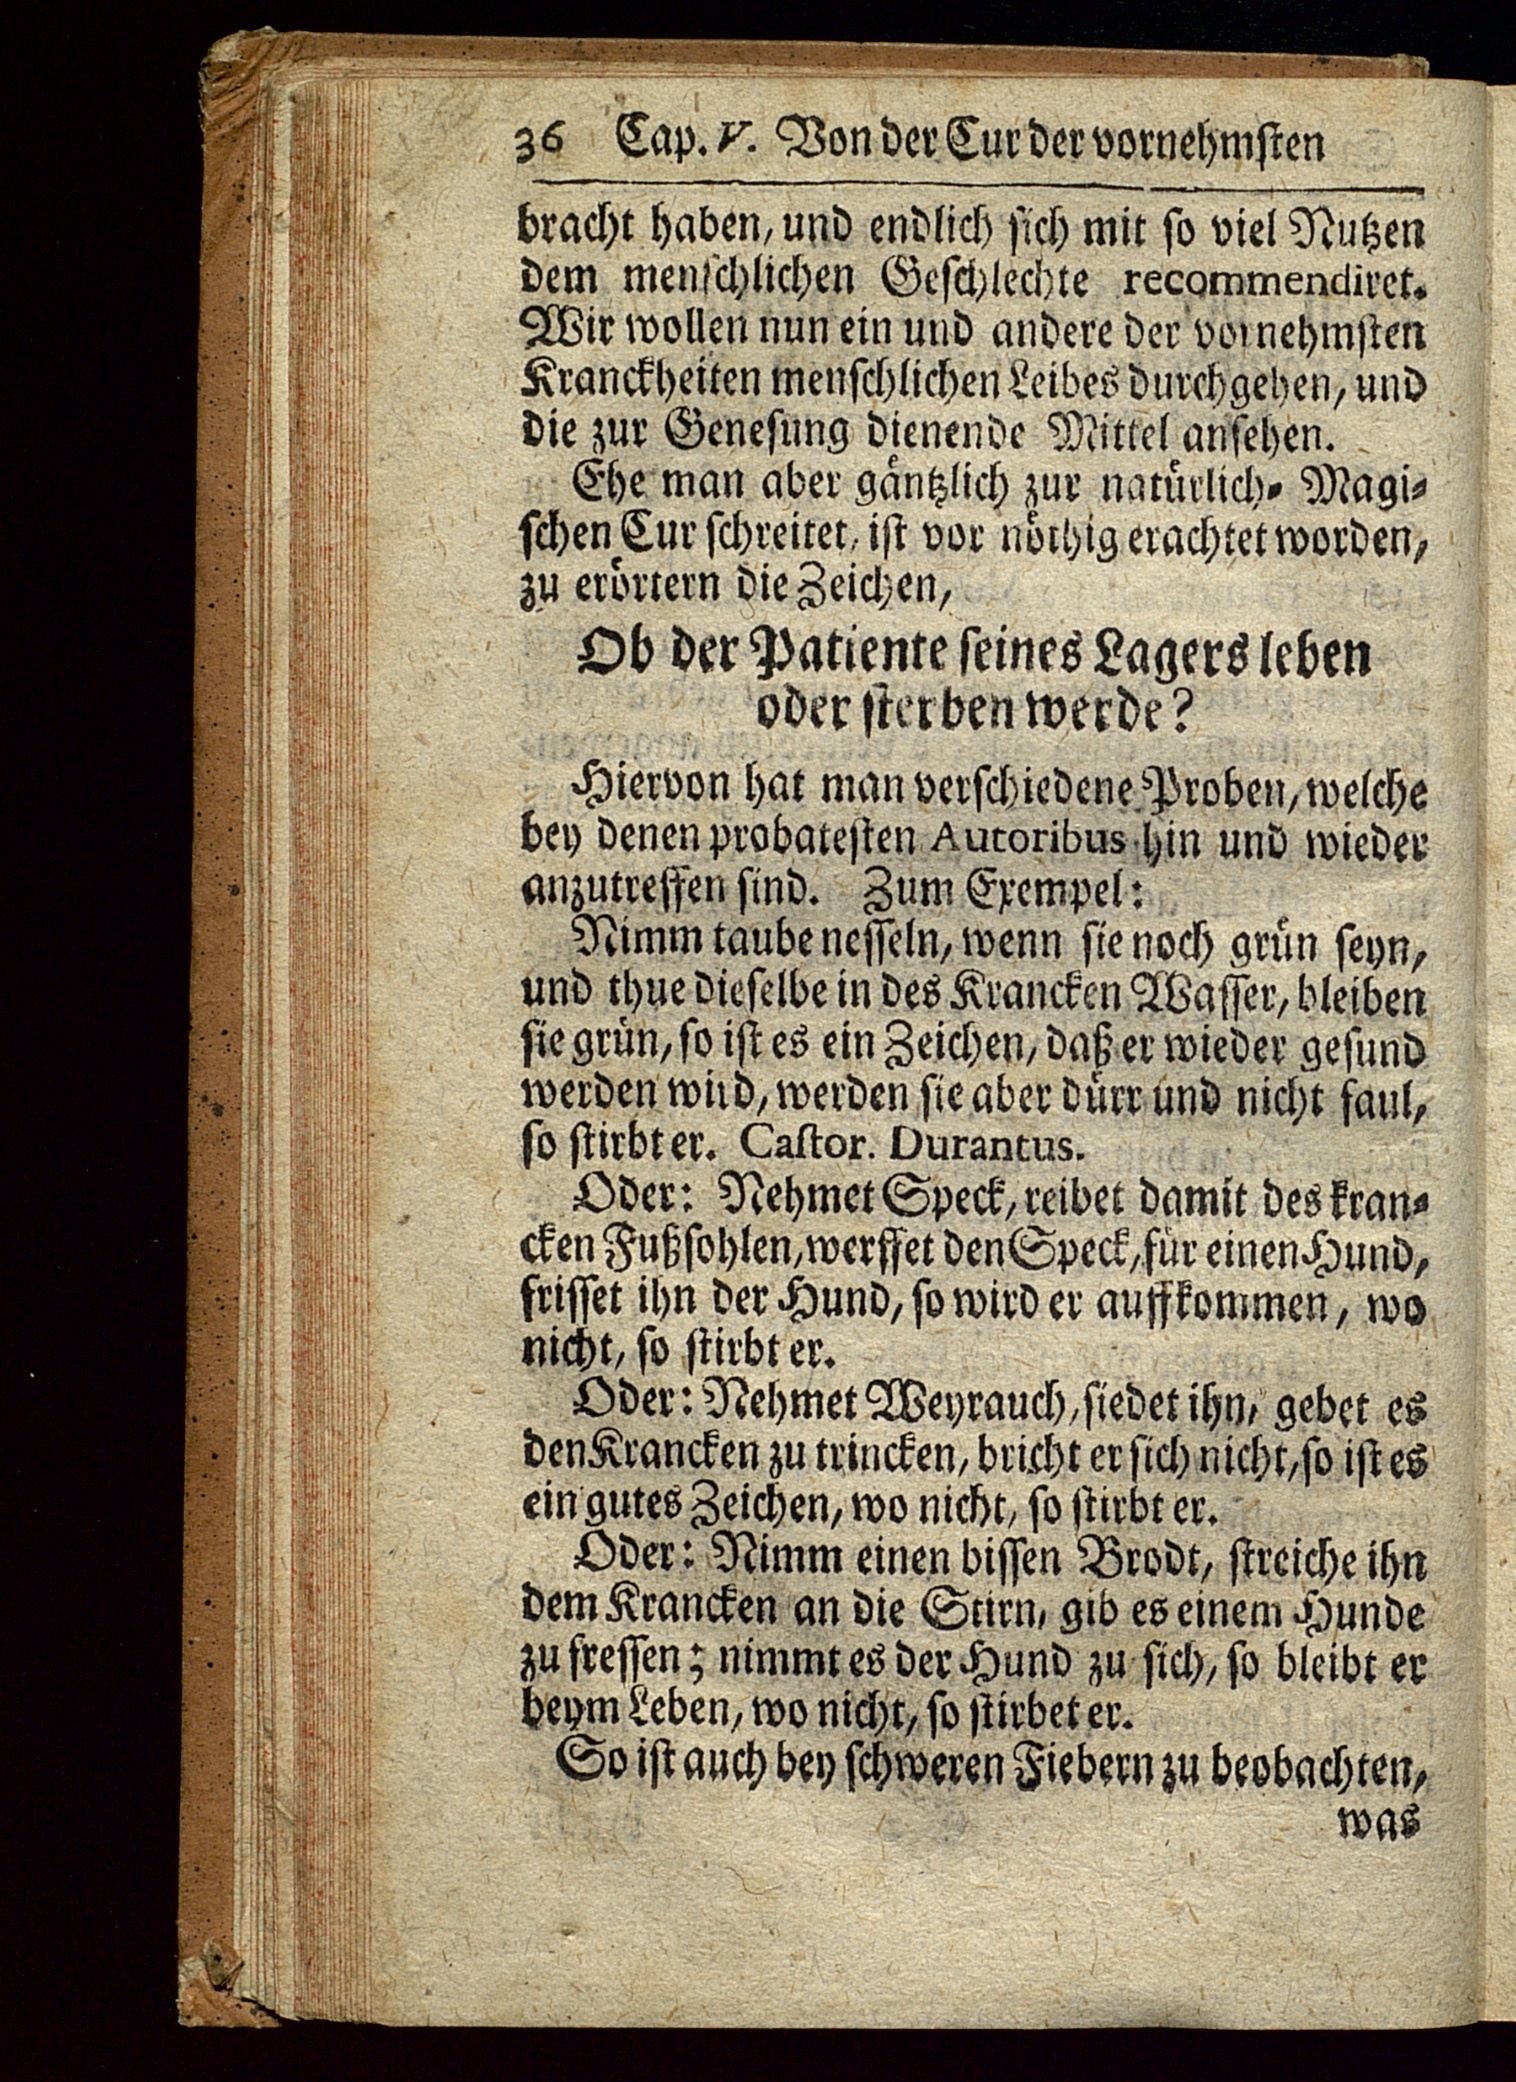 36 Cap. V. Von der Cur der vornehmsten
bracht haben, und endlich sich mit so viel Nutzen
dem menschlichen Geschlechte recommendiret.
Wir wollen nun ein und andere der vornehmsten
Kranckheiten menschlichen Leibes durchgehen, und
die zur Genesung dienende Mittel ansehen.
Ehe man aber gäntzlich zur natürlich- Magi-
schen Cur schreitet, ist vor nöthig erachtet worden,
zu erörtern die Zeichen,
Ob der Patiente seines Lagers leben
oder sterben werde?
Hiervon hat man verschiedene Proben, welche
bey denen probatesten Autoribus hin und wieder
anzutreffen sind. Zum Exempel:
Nimm taube nesseln, wenn sie noch grün seyn,
und thue dieselbe in des Krancken Wasser, bleiben
sie grün, so ist es ein Zeichen, daß er wieder gesund
werden wird, werden sie aber dürr und nicht faul,
so stirbt er. Castor. Durantus.
Oder: Nehmet Speck, reibet damit des kran-
cken Fußsohlen, werffet den Speck, für einen Hund,
frisset ihn der Hund, so wird er auffkommen, wo
nicht, so stirbt er.
Oder: Nehmet Weyrauch, siedet ihn, gebet es
den Krancken zu trincken, bricht er sich nicht, so ist es
ein gutes Zeichen, wo nicht, so stirbt er.
Oder: Nimm einen bissen Brodt, streiche ihn
dem Krancken an die Stirn, gib es einem Hunde
zu fressen; nimmt es der Hund zu sich, so bleibt er
beym Leben, wo nicht, so stirbet er.
So ist auch bey schweren Fiebern zu beobachten,
was